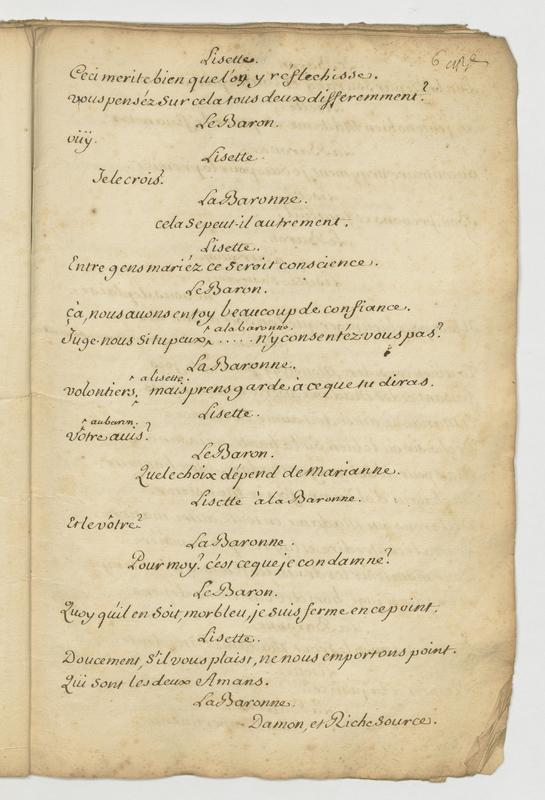 6
Lisette.
Ceci merite bien que l'on y réflechisse.
vous pensez sur cela tous deux differemment?
Le Baron.
Lisette
Je le crois.
La Baronne.
cela se peut-il autrement.
Lisette.
Entre gens mariéz ce seroit conscience.
Le Baron.
cà, nous auons en toy beaucoup de confiance.
a la baronne.
Juge-nous si tu peux ..... n'y consentéz-vous pas?
La Baronne.
a lisette.
volontiers, mais prens garde à ce que tu diras.
Lisette.
au baron.
Vôtre auis?
Le Baron.
Que le choix dépend de Marianne.
Lisette à la Baronne.
Et le vôtre?
La Baronne.
Pour moy? c'est ce que je condamne?
Le Baron.
Quoy qu'il en soit, morbleu, je suis ferme en ce point.
Lisette.
Doucement, s'il vous plaist, ne nous emportons point.
Qui sont les deux Amans.
La Baronne.
Damon, et Richesource.